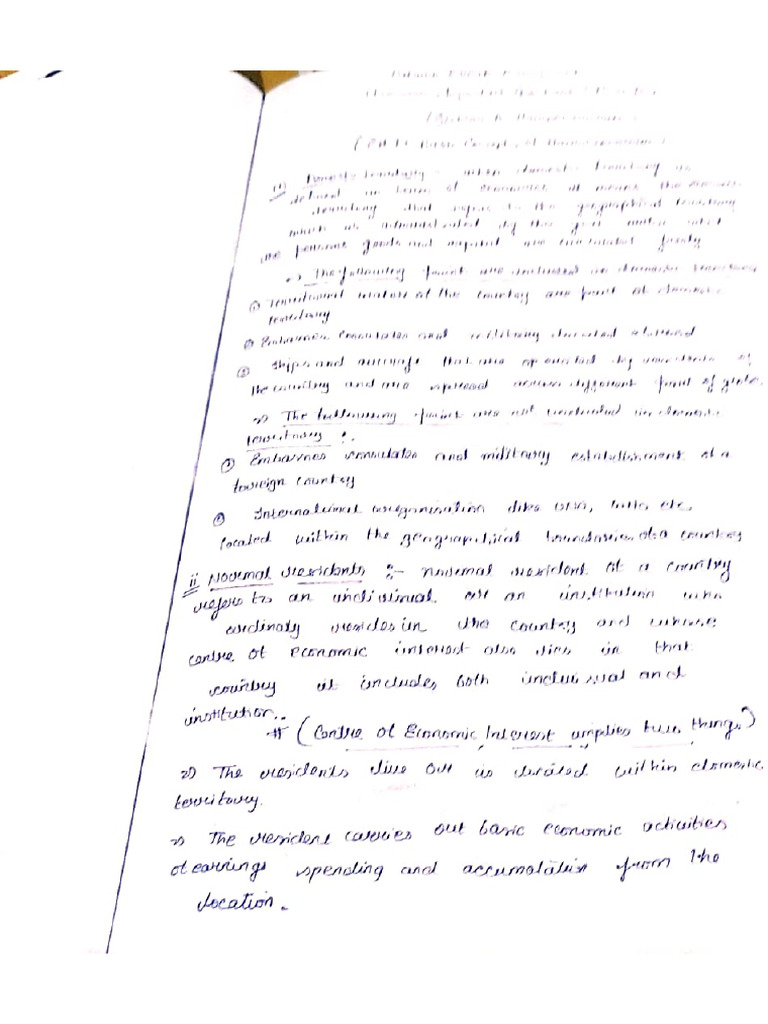 (i) Domestic territory :- when domestic territory is
defined in terms of economics it means the economic
territory that refers to the geographical territory
which is administrated by the govt
persons goods and capital are circulated freely
=> The following point are included in domestic territory
① territorial waters of the country are point of domestic
territory
② Embassies consulates and military located abroad
③ Ships and aircraft that are operated by residents of
the country and are across different point of globe.
=> The following point are not included in domestic
territory :-
① Embassies consulates and military establishment of a
foreign country
② International organisation like etc.
located within the geographical boundaries of a country
ii Normal residents :- normal resident of a country
refers to an individual or an institution who
ordinarly resides in the country and whose
centre of economic interest also lies in that
country it includes both and
institution.
# (Centre of Economic Interest implies two things)
=> The residents live or is located within domestic
territory.
=> The resident carries out basic economic activities
of earnings spending and from the
location.